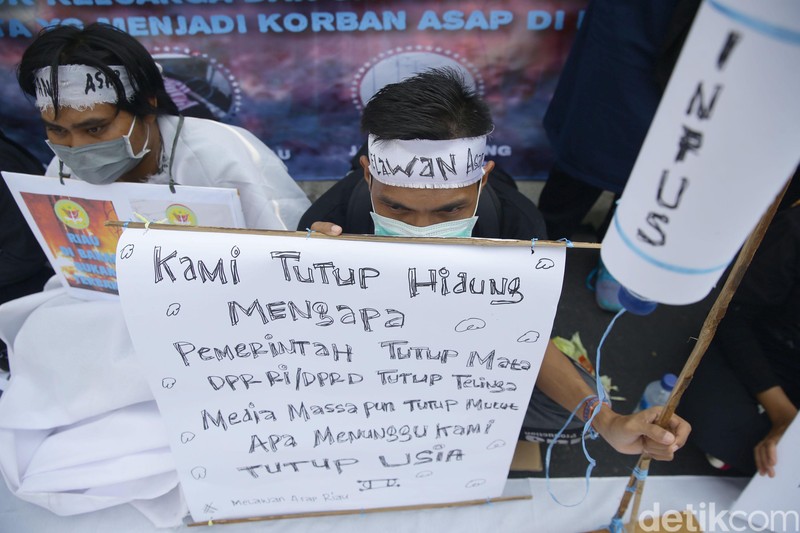 YG MENJADI KORBAN ASAP DI
ASAP
LAWAN ASAP
INFUS
RIAU
DI BAKAR
BUKAN
TERBAKAR
KAMI TUTUP HIDUNG
MENGAPA
PEMERINTAH TUTUP MATA
DPR RI/DPRD TUTUP TELINGA
MEDIA MASSA PUN TUTUP MULUT
APA MENUNGGU KAMI
TUTUP USIA
MELAWAN ASAP RIAU
detikcom